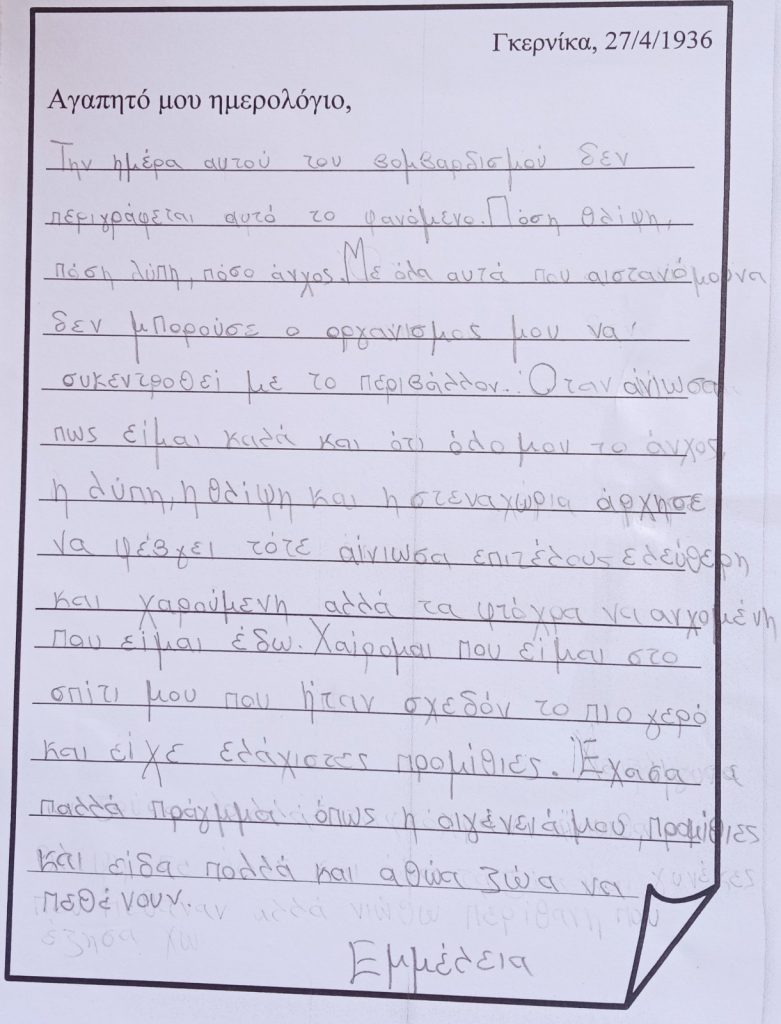 Γκερνίκα, 27/4/1936
Αγαπητό μου ημερολόγιο,
Την ημέρα αυτού του βομβαρδισμού δεν
περιγράφεται αυτό το φανόμενο. Πόση θλίψη,
πόση λύπη, πόσο άνχος. Με όλα αυτά που αιστανόμουνα
δεν μπορούσε ο οργανισμος μου να
συκεντροθεί με το περιβάλλον. Όταν αίνιωσα
πως είμαι καλά και ότι όλο μου το άνχος,
η λύπη, η θλίψη και η στεναχώρια άρχησε
να φέβγει τότε αίνιωσα επιτέλους ελεύθερη
και χαρούμενη αλλά τα φτόχρα να ανχομένη
που είμαι έδω. Χαίρομαι που είμαι στο
σπίτι μου που ήταν σχεδόν το πιο γερό
και είχε ελάχιστες προμίθιες. Έχασα
παλλά πράγματα όπως η οιγένειά μου, προμίθιες
και είδα πολλά και αθώα ζώα να
πεθένουν.
αλλά νιώθω περίθανη που
έζησα
Εμμέλεια